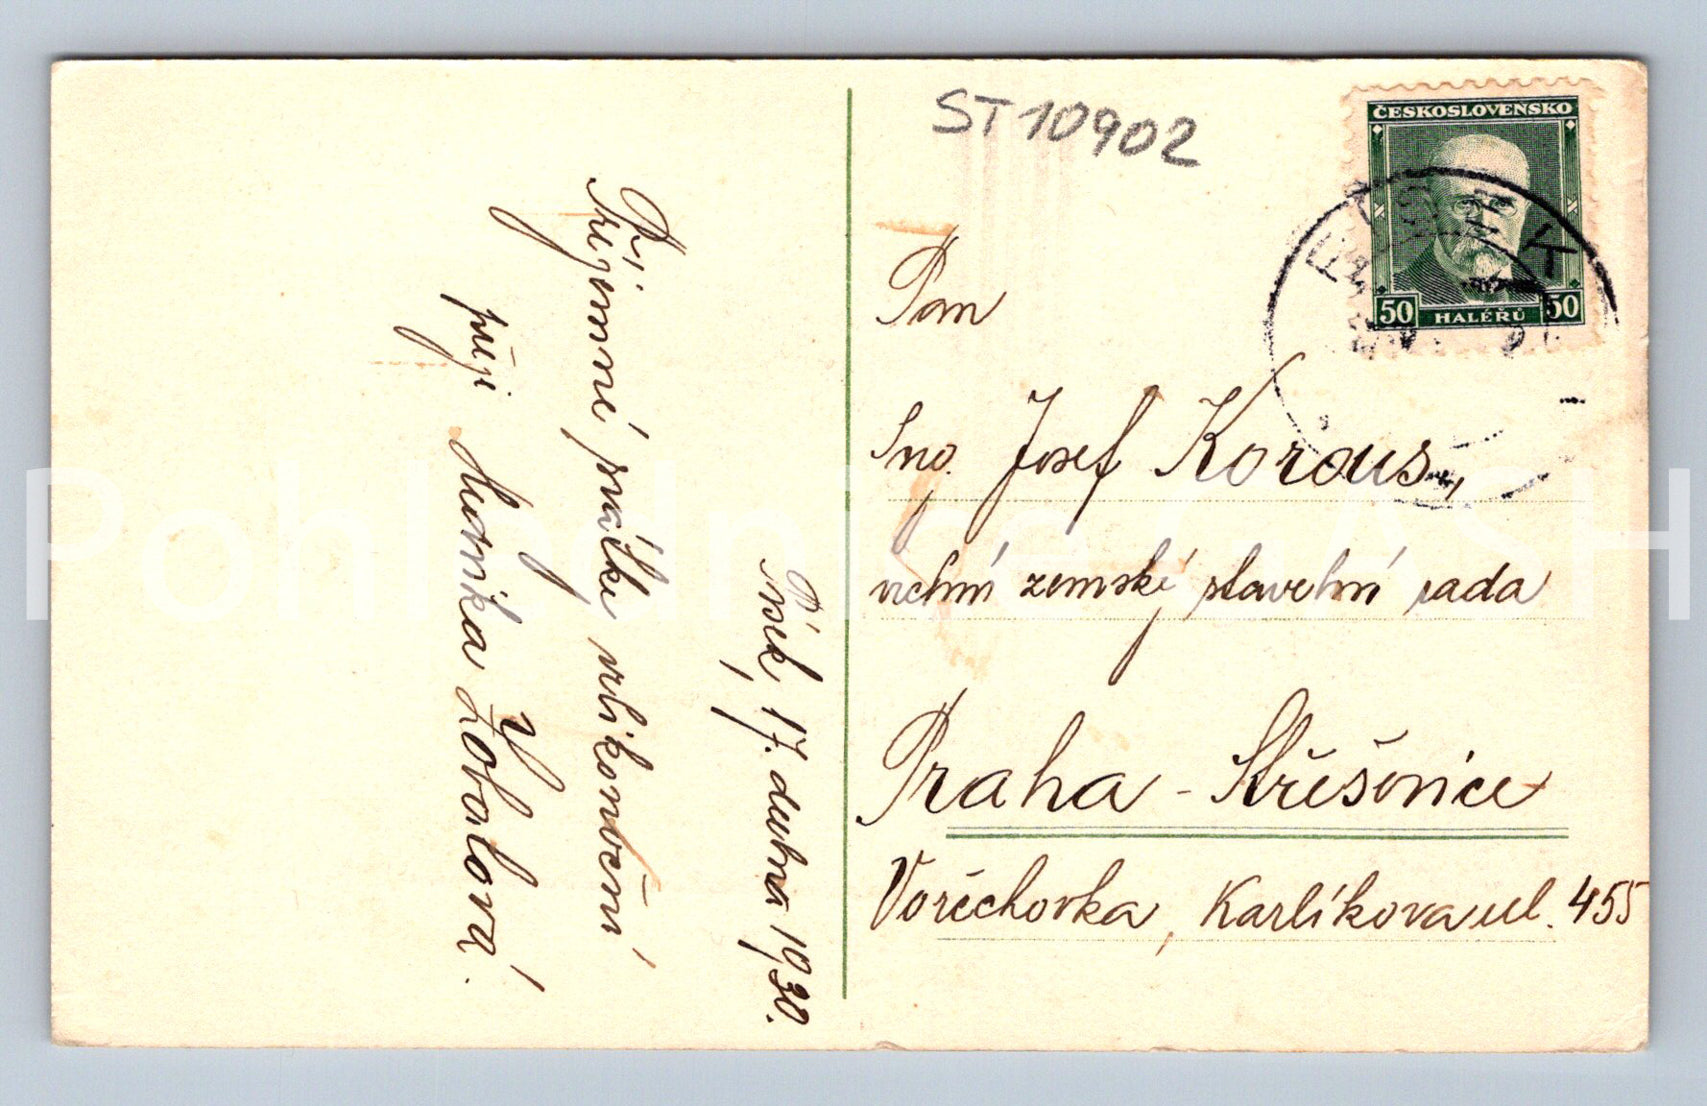 ST 10902
ČESKOSLOVENSKO
50 HALÉŘŮ 50
Pan
Ing. Josef Koraus,
vrchní zemský stavební rada
Praha - Střešovice
Vořechovka, Karlíkova ul. 455
Písek, 17. dubna 1930.
Příjemné svátky velikonoční
přeje